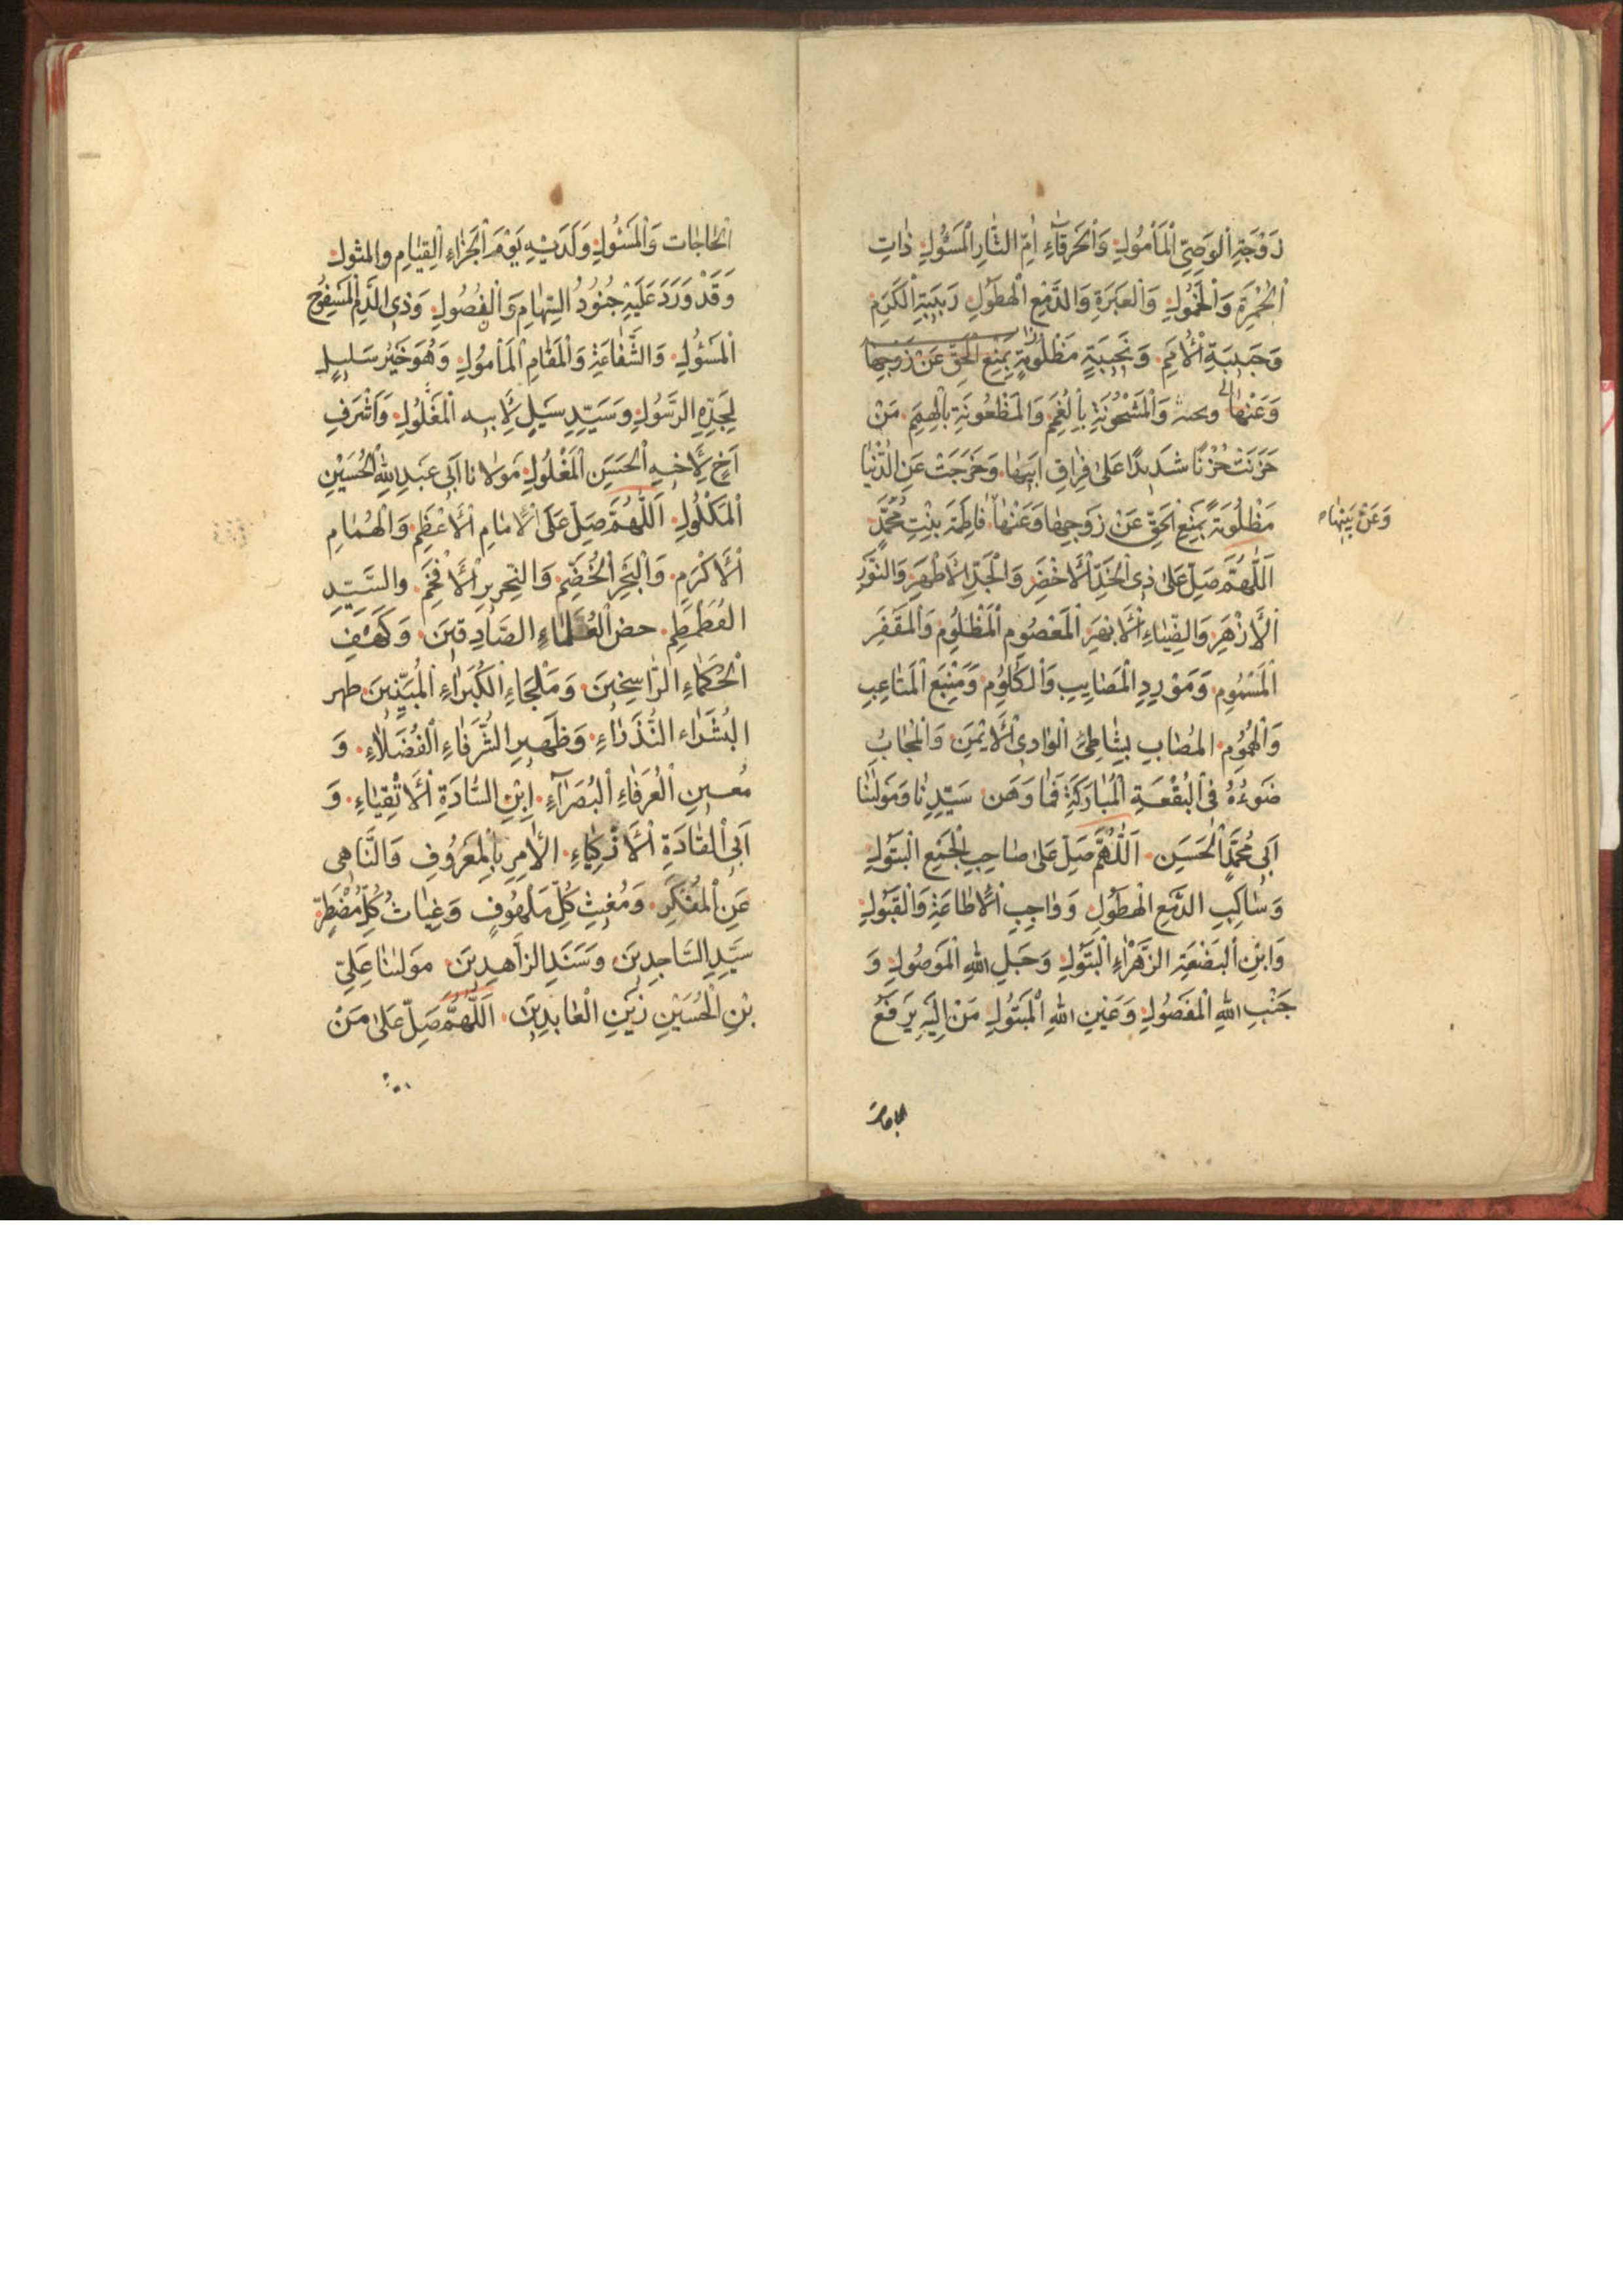 زَوْجَةِ الْوَصِيِّ الْمَأْمُولِ وَالْحَرْقَآءِ اُمِّ الثَّارِ الْمَسْئُولِ ذَاتِ
الْحُمْرَةِ وَالْخُمُولِ وَالْعَبَرَةِ وَالدَّمْعِ الْهَطُولِ رَبِيبَةِ الْكَرَمِ
وَحَبِيبَةِ الْاُمَمِ وَنَجِيبَةٍ مَظْلُومَةٍ بِمَنْعِ الْحَقِّ عَنْ زَوْجِهَا
وَعَنْهَا وَالْمَشْحُونَةِ بِالْغُمَمِ وَالْمَظْعُونَةِ بِالْهِمَمِ مَنْ
حَزَنَتْ حُزْنًا شَدِيدًا عَلىٰ فِرَاقِ اَبِيهَا وَخَرَجَتْ عَنِ الدُّنْيَا
مَظْلُومَةً بِمَنْعِ الْحَقِّ عَنْ زَوْجِهَا وَعَنْهَا فَاطِمَةَ بِنْتِ مُحَمَّدٍ
وَعَنْ بَنِيْهَا
اَللّٰهُمَّ صَلِّ عَلىٰ ذِى الْخَدِّ الْاَخْضَرِ وَالْجَدِّ الْاَطْهَرِ وَالنُّورِ
الْاَزْهَرِ وَالضِّيَاءِ الْاَبْهَرِ الْمَعْصُومِ الْمَظْلُومِ وَالْمَقْفَرِ
الْمَسْمُومِ وَمَوْرِدِ الْمَصَايِبِ وَالْكُلُومِ وَمَنْبَعِ الْمَتَاعِبِ
وَالْهُمُومِ الْمُصَابِ بِشَاطِئِ الْوَادِى الْاَيْمَنِ وَالْمُجَابُ
ضَوْءُهُ فِى الْبُقْعَةِ الْمُبَارَكَةِ فَمَا وَهَنَ سَيِّدِنَا وَمَوْلَينَا
اَبِى مُحَمَّدٍ الْحَسَنِ اَللّٰهُمَّ صَلِّ عَلىٰ صَاحِبِ الْجَمِيعِ الْبَتُولِ
وَسَاكِبِ الدَّمْعِ الْهَطُولِ وَوَاجِبِ الْاِطَاعَةِ وَالْقَبُولِ
وَابْنِ الْبَضْعَةِ الزَّهْرَاءِ الْبَتُولِ وَحَبْلِ اللهِ الْمَوْصُولِ وَ
جَنْبِ اللهِ الْمَفْصُولِ وَعَيْنِ اللهِ الْمَبْتُولِ مَنْ اِلَيْهِ يَرْفَعُ
الحاجات
الْحَاجَات وَالْمَسْئُولِ وَلَدَيْهِ يَوْمَ الْجَزَاءِ الْقِيَامِ والمثول
وَقَدْ وَرَدَ عَلَيْهِ جُنُودُ السِّهَامِ وَالْفُصُولِ وَذِى الدَّمِ الْمَسْفُوحِ
الْمَسْئُولِ وَالشَّفَاعَةِ وَالْمَقَامِ الْمَأمُولِ وَهُوَ خَيْرُ سَلِيلٍ
لِجَدِّهِ الرَّسُولِ وَسَيِّدِ سَلِيلٍ لِاَبِيهِ الْمَغْلُولِ وَاَشْرَفِ
اَخٍ لِاَخِيهِ الْحَسَنِ الْمَغْلُولِ مَوْلَانا اَبِى عَبْدِ اللهِ الْحُسَيْنِ
الْمَكْلُولِ اَللّٰهُمَّ صَلِّ عَلَى الْاِمَامِ الْاَعْظَمِ وَالْهُمَامِ
الْاَكْرَمِ وَالْبَحْرِ الْخِضَمِّ وَالنِّحْرِيرِ الْاَفْخَمِ والسَّيِّدِ
الْغَطَمْطَمِ حصن الْعُلَمَاءِ الصَّادِقِينَ وَكَهْفِ
الْحُكَمَاءِ الرَّاسِخِينَ وَمَلْجَاءِ الْكُبَرَاءِ الْمُبَيِّنِينَ ظهر
الْبُشَرَاءِ النُّذَرَاءِ وَظَهِيرِ الشُّرَفَاءِ الْفُضَلَاءِ وَ
مُعِينِ الْعُرَفَاءِ الْبُصَرَآءِ اِبْنِ السَّادَةِ الْاَتْقِيَاءِ وَ
اَبِى الْقَادَةِ الْاَذْكِيَاءِ الْاٰمِرِ بِالْمَعْرُوفِ وَالنَّاهِى
عَنِ الْمُنْكَرِ وَمُغِيثِ كُلِّ مَلْهُوفٍ وَغِيَاثُ كُلِّ مُضْطَرٍّ
سَيِّدِ السَّاجِدِينَ وَسَنَدِ الزَّاهِدِينَ مَوْلَينَا عَلِيِّ
بْنِ الْحُسَيْنِ زَيْنِ الْعَابِدِينَ اَللّٰهُمَّ صَلِّ عَلىٰ مَنْ